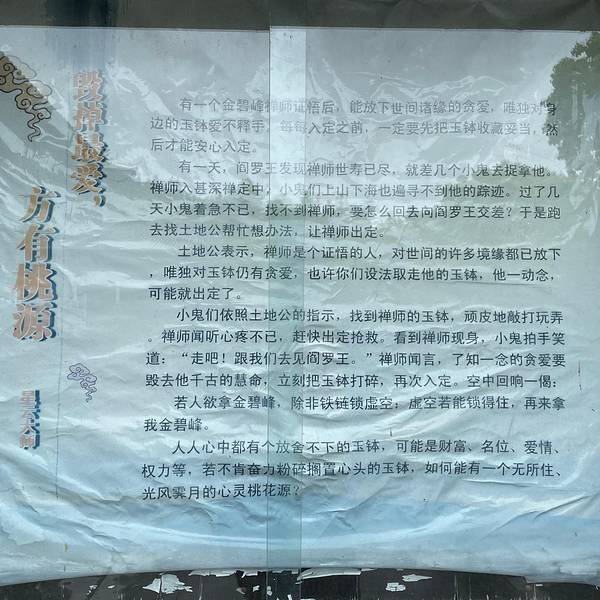 毁掉最爱，
方有桃源
星云大师
有一个金碧峰禅师证悟后，能放下世间诸缘的贪爱，唯独对身
边的玉钵爱不释手。每每入定之前，一定要先把玉钵收藏妥当，然
后才能安心入定。
有一天，阎罗王发现禅师世寿已尽，就差几个小鬼去捉拿他。
禅师入甚深禅定中，小鬼们上山下海也遍寻不到他的踪迹。过了几
天小鬼着急不已，找不到禅师，要怎么回去向阎罗王交差？于是跑
去找土地公帮忙想办法，让禅师出定。
土地公表示，禅师是个证悟的人，对世间的许多境缘都已放下
，唯独对玉钵仍有贪爱，也许你们设法取走他的玉钵，他一动念，
可能就出定了。
小鬼们依照土地公的指示，找到禅师的玉钵，顽皮地敲打玩弄
。禅师闻听心疼不已，赶快出定抢救。看到禅师现身，小鬼拍手笑
道：“走吧！跟我们去见阎罗王。”禅师闻言，了知一念的贪爱要
毁去他千古的慧命，立刻把玉钵打碎，再次入定。空中回响一偈：
若人欲拿金碧峰，除非铁链锁虚空；虚空若能锁得住，再来拿
我金碧峰。
人人心中都有个放舍不下的玉钵，可能是财富、名位、爱情、
权力等，若不肯奋力粉碎搁置心头的玉钵，如何能有一个无所住、
光风霁月的心灵桃花源？